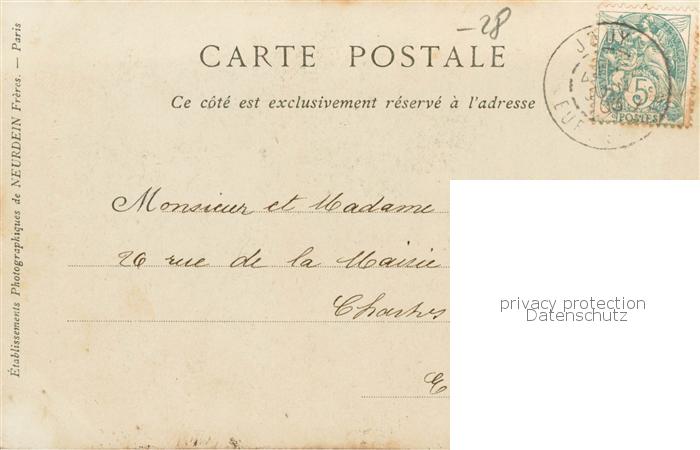 -28
CARTE POSTALE
Ce côté est exclusivement réservé à l'adresse
JOUY
5c
POSTES
Établissements Photographiques de NEURDEIN Frères. — Paris
Monsieur et Madame
26 rue de la Mairie
Chartres
E
privacy protection
Datenschutz